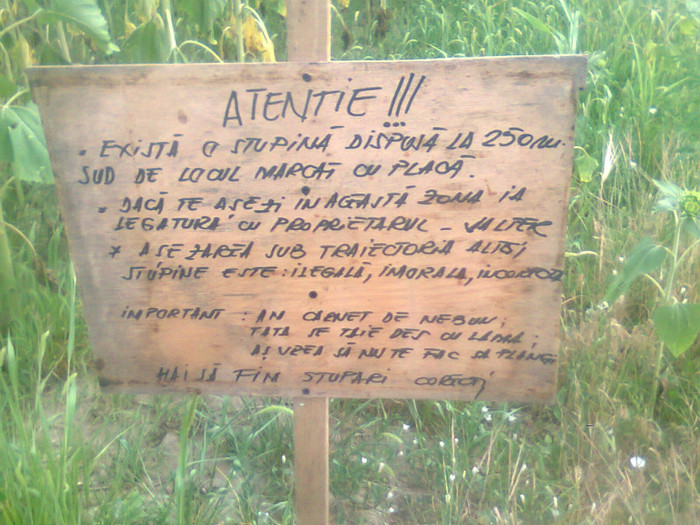 ATENTIE!!!
• EXISTĂ O STUPINĂ DISPUSĂ LA 250 m.
SUD DE LOCUL MARCAT CU PLACĂ.
• DACĂ TE AȘEZI IN ACEASTĂ ZONA IA
LEGATURA CU PROPRIETARUL - WALTER
* ASEZAREA SUB TRAIECTORIA ALTEI
STUPINE ESTE: ILEGALĂ, IMORALA, INCORECTĂ
IMPORTANT: AM CARNET DE NEBUN;
TATA SE TAIE DES CU LAMA;
AȘ VREA SĂ NU TE FAC SA PLANGI
HAI SĂ FIM STUPARI CORECȚI